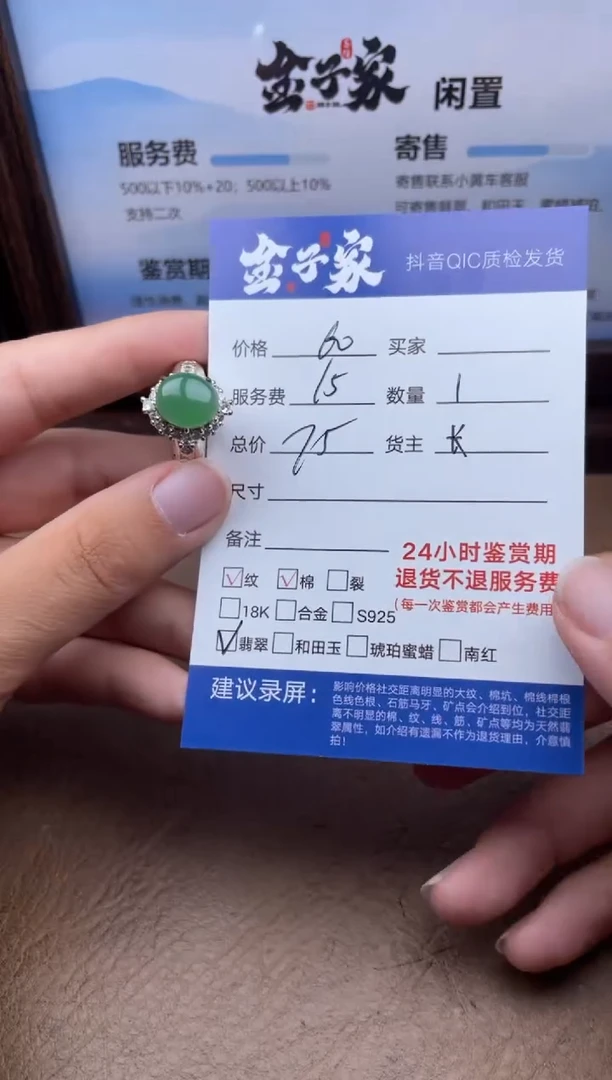 金子家
闲置
服务费
500以下10%+20；500以上10%
支持二次
寄售
寄售联系小黄车客服
鉴赏期
金子家
抖音QIC质检发货
价格 60 买家
服务费 15 数量 1
总价 75 货主 K
尺寸
备注
24小时鉴赏期
退货不退服务费
(每一次鉴赏都会产生费用
纹 棉 裂
18K 合金 S925
翡翠 和田玉 琥珀蜜蜡 南红
建议录屏：
影响价格社交距离明显的大纹、棉坑、棉线棉根
色线色根、石筋马牙、矿点会介绍到位，社交距
离不明显的棉、纹、线、筋、矿点等均为天然翡
翠属性，如介绍有遗漏不作为退货理由，介意慎
拍！